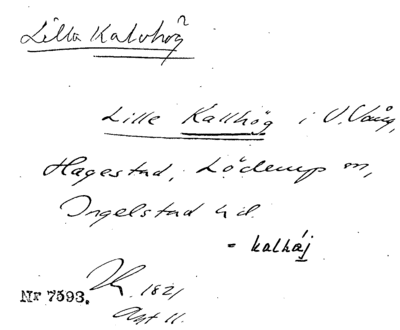 Lilla Kalvhög
Lille Kallhög i V. Vång,
Hagestad, Löderups sn,
Ingelstad hd.
= kalhåj
1821
Nr 7593.
Akt 11.